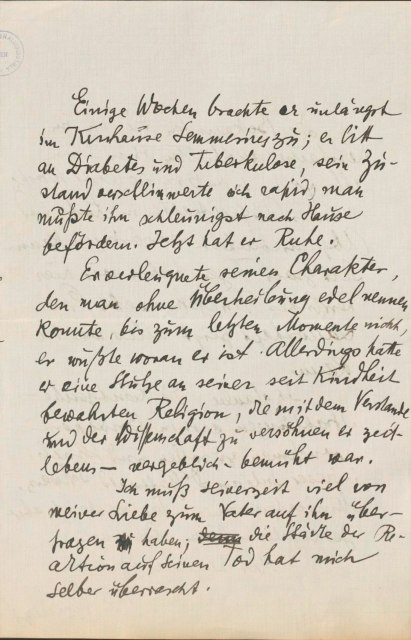 Einige Wochen brachte er unlängst
im Kurhause Semmering zu; er litt
an Diabetes und Tuberkulose, sein Zu-
stand verschlimmerte sich rapid, man
mußte ihn schleunigst nach Hause
befördern. Jetzt hat er Ruhe.
Er verleugnete seinen Charakter,
den man ohne Überhebung edel nennen
konnte, bis zum letzten Momente nicht,
er wußte woran er ist. Allerdings hatte
er eine Stütze an seiner seit Kindheit
bewahrten Religion, die mit dem Verstande
und der Wissenschaft zu versöhnen er zeit-
lebens – vergeblich – bemüht war.
Ich muß seinerzeit viel von
meiner Liebe zum Vater auf ihn über-
tragen haben; denn die Stärke der Re-
aktion auf seinen Tod hat mich
selber überrascht.